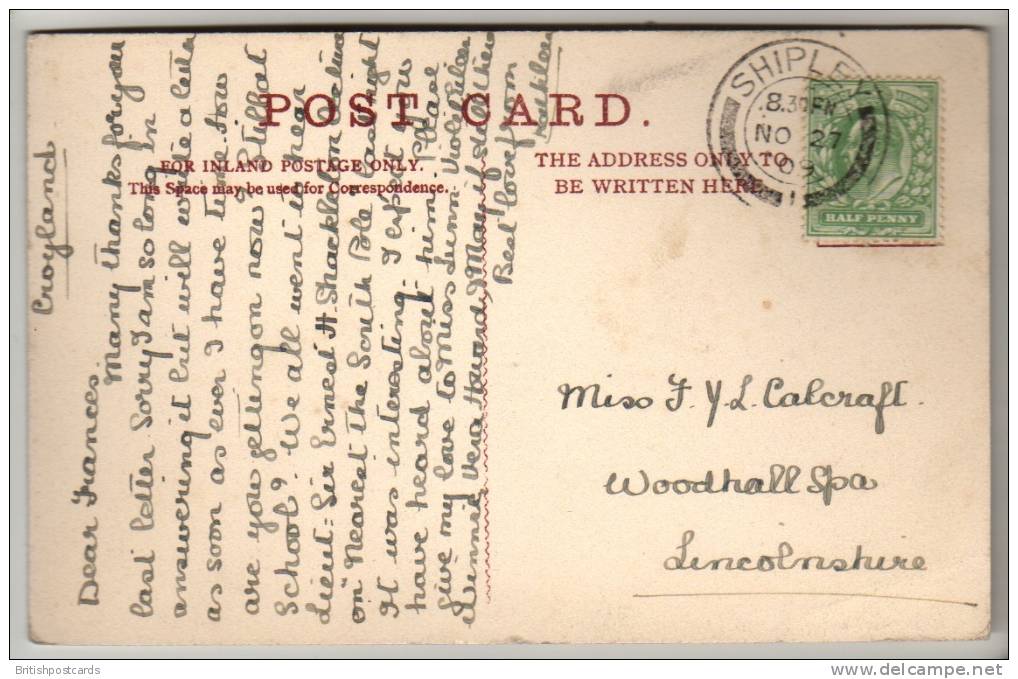 POST CARD.
FOR INLAND POSTAGE ONLY.
This Space may be used for Correspondence.
THE ADDRESS ONLY TO
BE WRITTEN HERE
SHIPLEY
8.30PM
NO 27
09
HALF PENNY
Croyland
Dear Frances.
Many thanks for you
last letter Sorry I am so long in
answering it but will write a letter
as soon as ever I have time. How
are you getting on now? Still at
School? We all went to hear
Lieut: Sir Ernest H. Shackleton lecture
on "Nearest the South Pole" last night
It was interesting. I expect you
have heard about him. Please
Give my love to Miss Lunn Violet
Winnie Vera Howard, Mary if still there
Best love from
Miss F. Y. L. Calcraft.
Woodhall Spa
Lincolnshire
Britishpostcards
www.delcampe.net